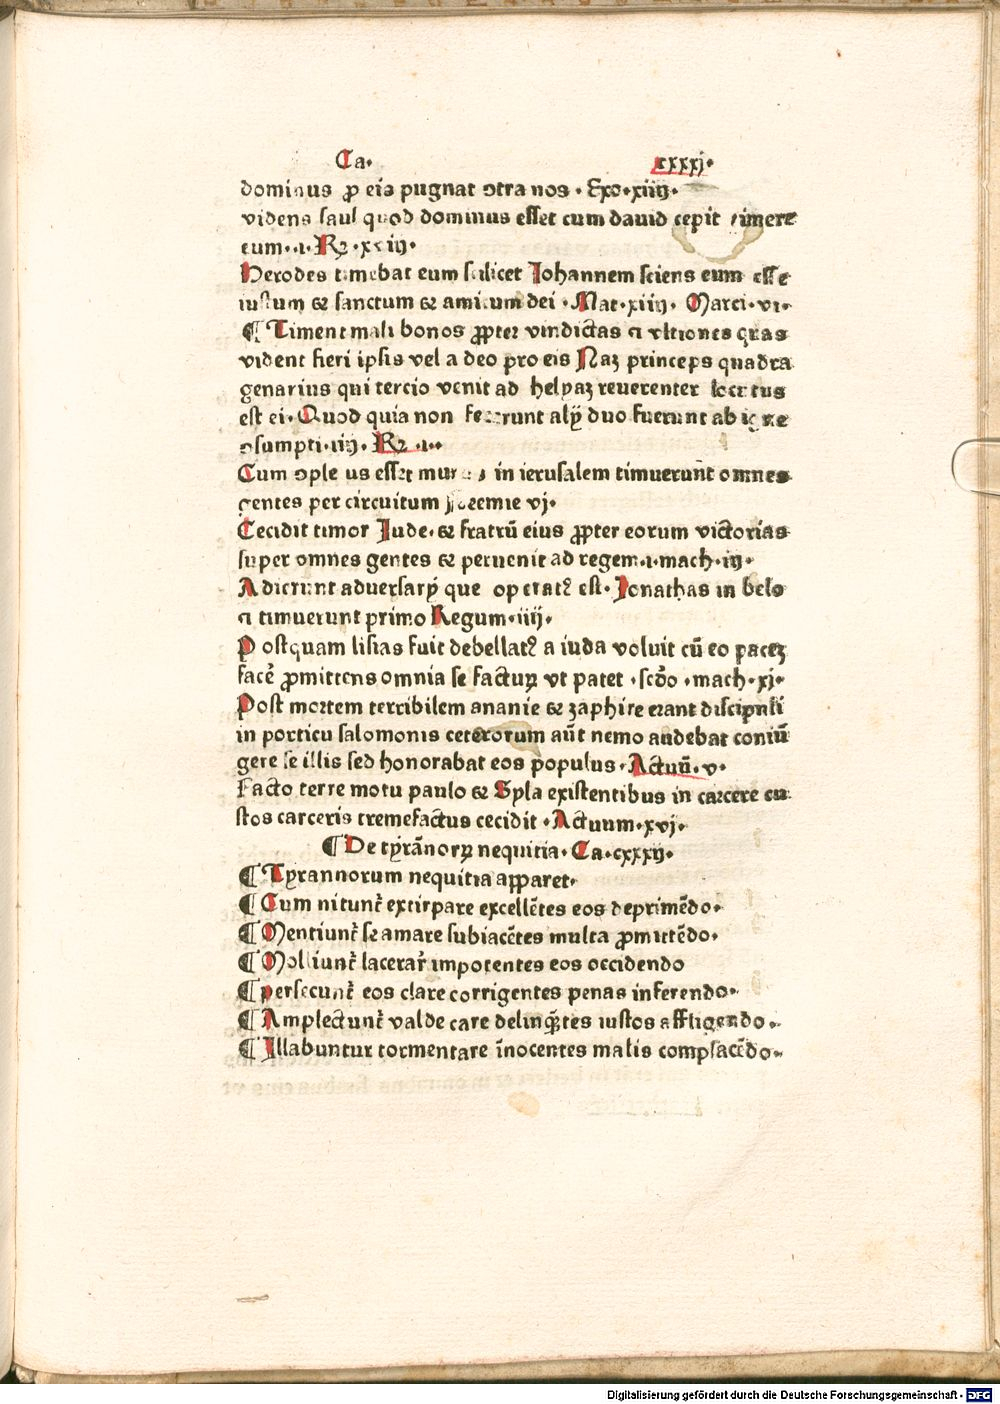 Ca. cxxxj.
dominus ꝓ eis pugnat ↄtra nos. Exo. xiiij.
videns saul quod dominus esset cum dauid cepit timere
eum. .i. Rꝫ. xviij.
Herodes timebat eum scilicet Johannem sciens eum esse
iustum ⁊ sanctum ⁊ amicum dei. Mat. xiiij. Marci. vi.
¶ Timent mali bonos ꝓpter vindictas ⁊ vltiones quas
vident fieri ipsis vel a deo pro eis Naꝫ princeps quadra
genarius qui tercio venit ad helyaꝫ reuerenter locutus
est ei. Quod quia non fecerunt alij duo fuerunt ab igne
ↄsumpti. iiij. Rꝫ. .i.
Cum ↄpletus esset murus in ierusalem timuerunt omnes
gentes per circuitum vj.
Cecidit timor Jude. ⁊ fratrū eius ꝓpter eorum victorias
super omnes gentes ⁊ peruenit ad regem. .i. mach. iij.
Adierunt aduersarij que operatꝰ est. Jonathas in belo
⁊ timuerunt primo Regum. iiij.
Postquam lisias fuit debellatꝰ a iuda voluit cū eo paceꝫ
facē ꝓmittens omnia se factuꝝ vt patet. scdo. mach. xj.
Post mortem terribilem ananie ⁊ zaphire erant discipuli
in porticu salomonis ceterorum aūt nemo audebat coniū
gere se illis sed honorabat eos populus. Actuū. v.
Facto terre motu paulo ⁊ Syla existentibus in carcere cu
stos carceris tremefactus cecidit. Actuum. xvj.
¶ De tyrānoꝝ nequitia. Ca. cxxxij.
¶ Tyrannorum nequitia apparet.
¶ Cum nitunt᷑ extirpare excellētes eos deprimēdo.
¶ Mentiunt᷑ se amare subiacētes multa ꝓmittēdo.
¶ Molliunt᷑ lacerar᷑ impotentes eos occidendo
¶ persecunt᷑ eos clare corrigentes penas inferendo.
¶ Amplectunt᷑ valde care delinq̄tes iustos affligendo.
¶ Illabuntur tormentare īnocentes malis complacēdo.
Digitalisierung gefördert durch die Deutsche Forschungsgemeinschaft - DFG